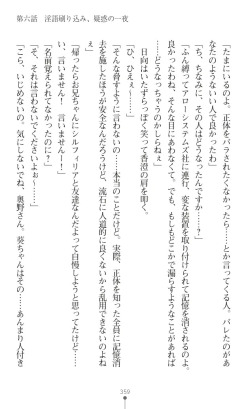 第六話　淫語刷り込み、疑惑の一夜
「たまにいるのよ、正体をバラされたくなかったら、……って脅す奴が。バレたのがあ
なたみたいないい人で良かったわ」
「ち、ちなみに、そんなこと言ったらどうなっちゃうのかな？」
「ふん縛ってアローシステムズ社に連行、変な装置を取り付けられて記憶を消されるのよ。
良かったわね、そんな目にあわなくて。でも、もしもどこかで漏らすようなことがあれば
……どうなっちゃうのかしらねぇ」
「ひ、ひえぇ～……」
日向はいたずらっぽく笑って香澄の肩を叩く。
「そんな脅すように言わないの……本当のことだけど、実際、正体を知った全員に記憶消
去を施したほうが安全なんだろうけど、流石に人道的に良くないから乱用できないわね」
「帰ったらお兄ちゃんにシルフィリアと友達なんだよって自慢しようと思ってたけど……
い、言いません！　言いませんー！」
「名前覚えられてなかったけどね」
「それは言わないでくださいよぉ～……」
「こら、いじめないの。気にしないでね、奥野さん。葵ちゃんはその……あんまり人付き
359